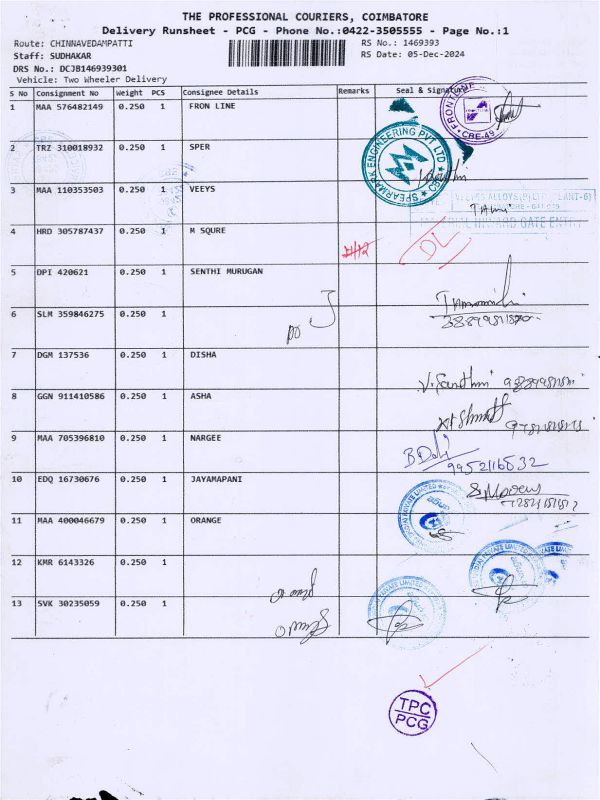 THE PROFESSIONAL COURIERS, COIMBATORE
Delivery Runsheet - PCG - Phone No.:0422-3505555 - Page No.:1
Route: CHINNAVEDAMPATTI RS No.: 1469393
Staff: SUDHAKAR RS Date: 05-Dec-2024
DRS No.: DCJB146939301
Vehicle: Two Wheeler Delivery
S No Consignment No Weight PCS Consignee Details Remarks Seal & Signature
1 MAA 576482149 0.250 1 FRON LINE
FRONTLINE
CBE-49
2 TRZ 310018932 0.250 1 SPER
SPEARMARK ENGINEERING PVT LTD
3 MAA 110353503 0.250 1 VEEYS
4 HRD 305787437 0.250 1 M SQURE
DL
5 DPI 420621 0.250 1 SENTHI MURUGAN
6 SLM 359846275 0.250 1
7 DGM 137536 0.250 1 DISHA
8 GGN 911410586 0.250 1 ASHA
9 MAA 705396810 0.250 1 NARGEE
9952116532
10 EDQ 16730676 0.250 1 JAYAMAPANI
11 MAA 400046679 0.250 1 ORANGE
12 KMR 6143326 0.250 1
13 SVK 30235059 0.250 1
TPC
PCG